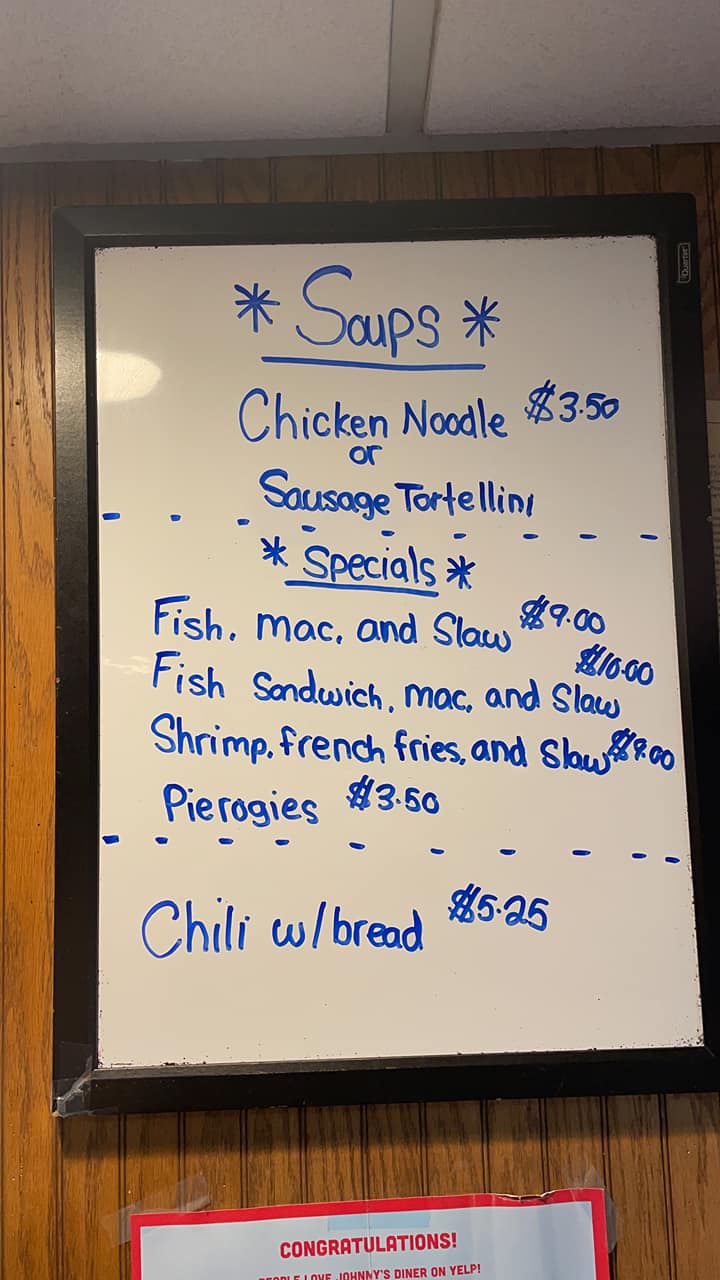 * Soups *
Chicken Noodle $3.50
or
Sausage Tortellini
* Specials *
Fish, mac, and Slaw $9.00
Fish Sandwich, mac, and Slaw $10.00
Shrimp, french fries, and Slaw $9.00
Pierogies $3.50
Chili w/bread $5.25
Quartet
CONGRATULATIONS!
PEOPLE LOVE JOHNNY'S DINER ON YELP!